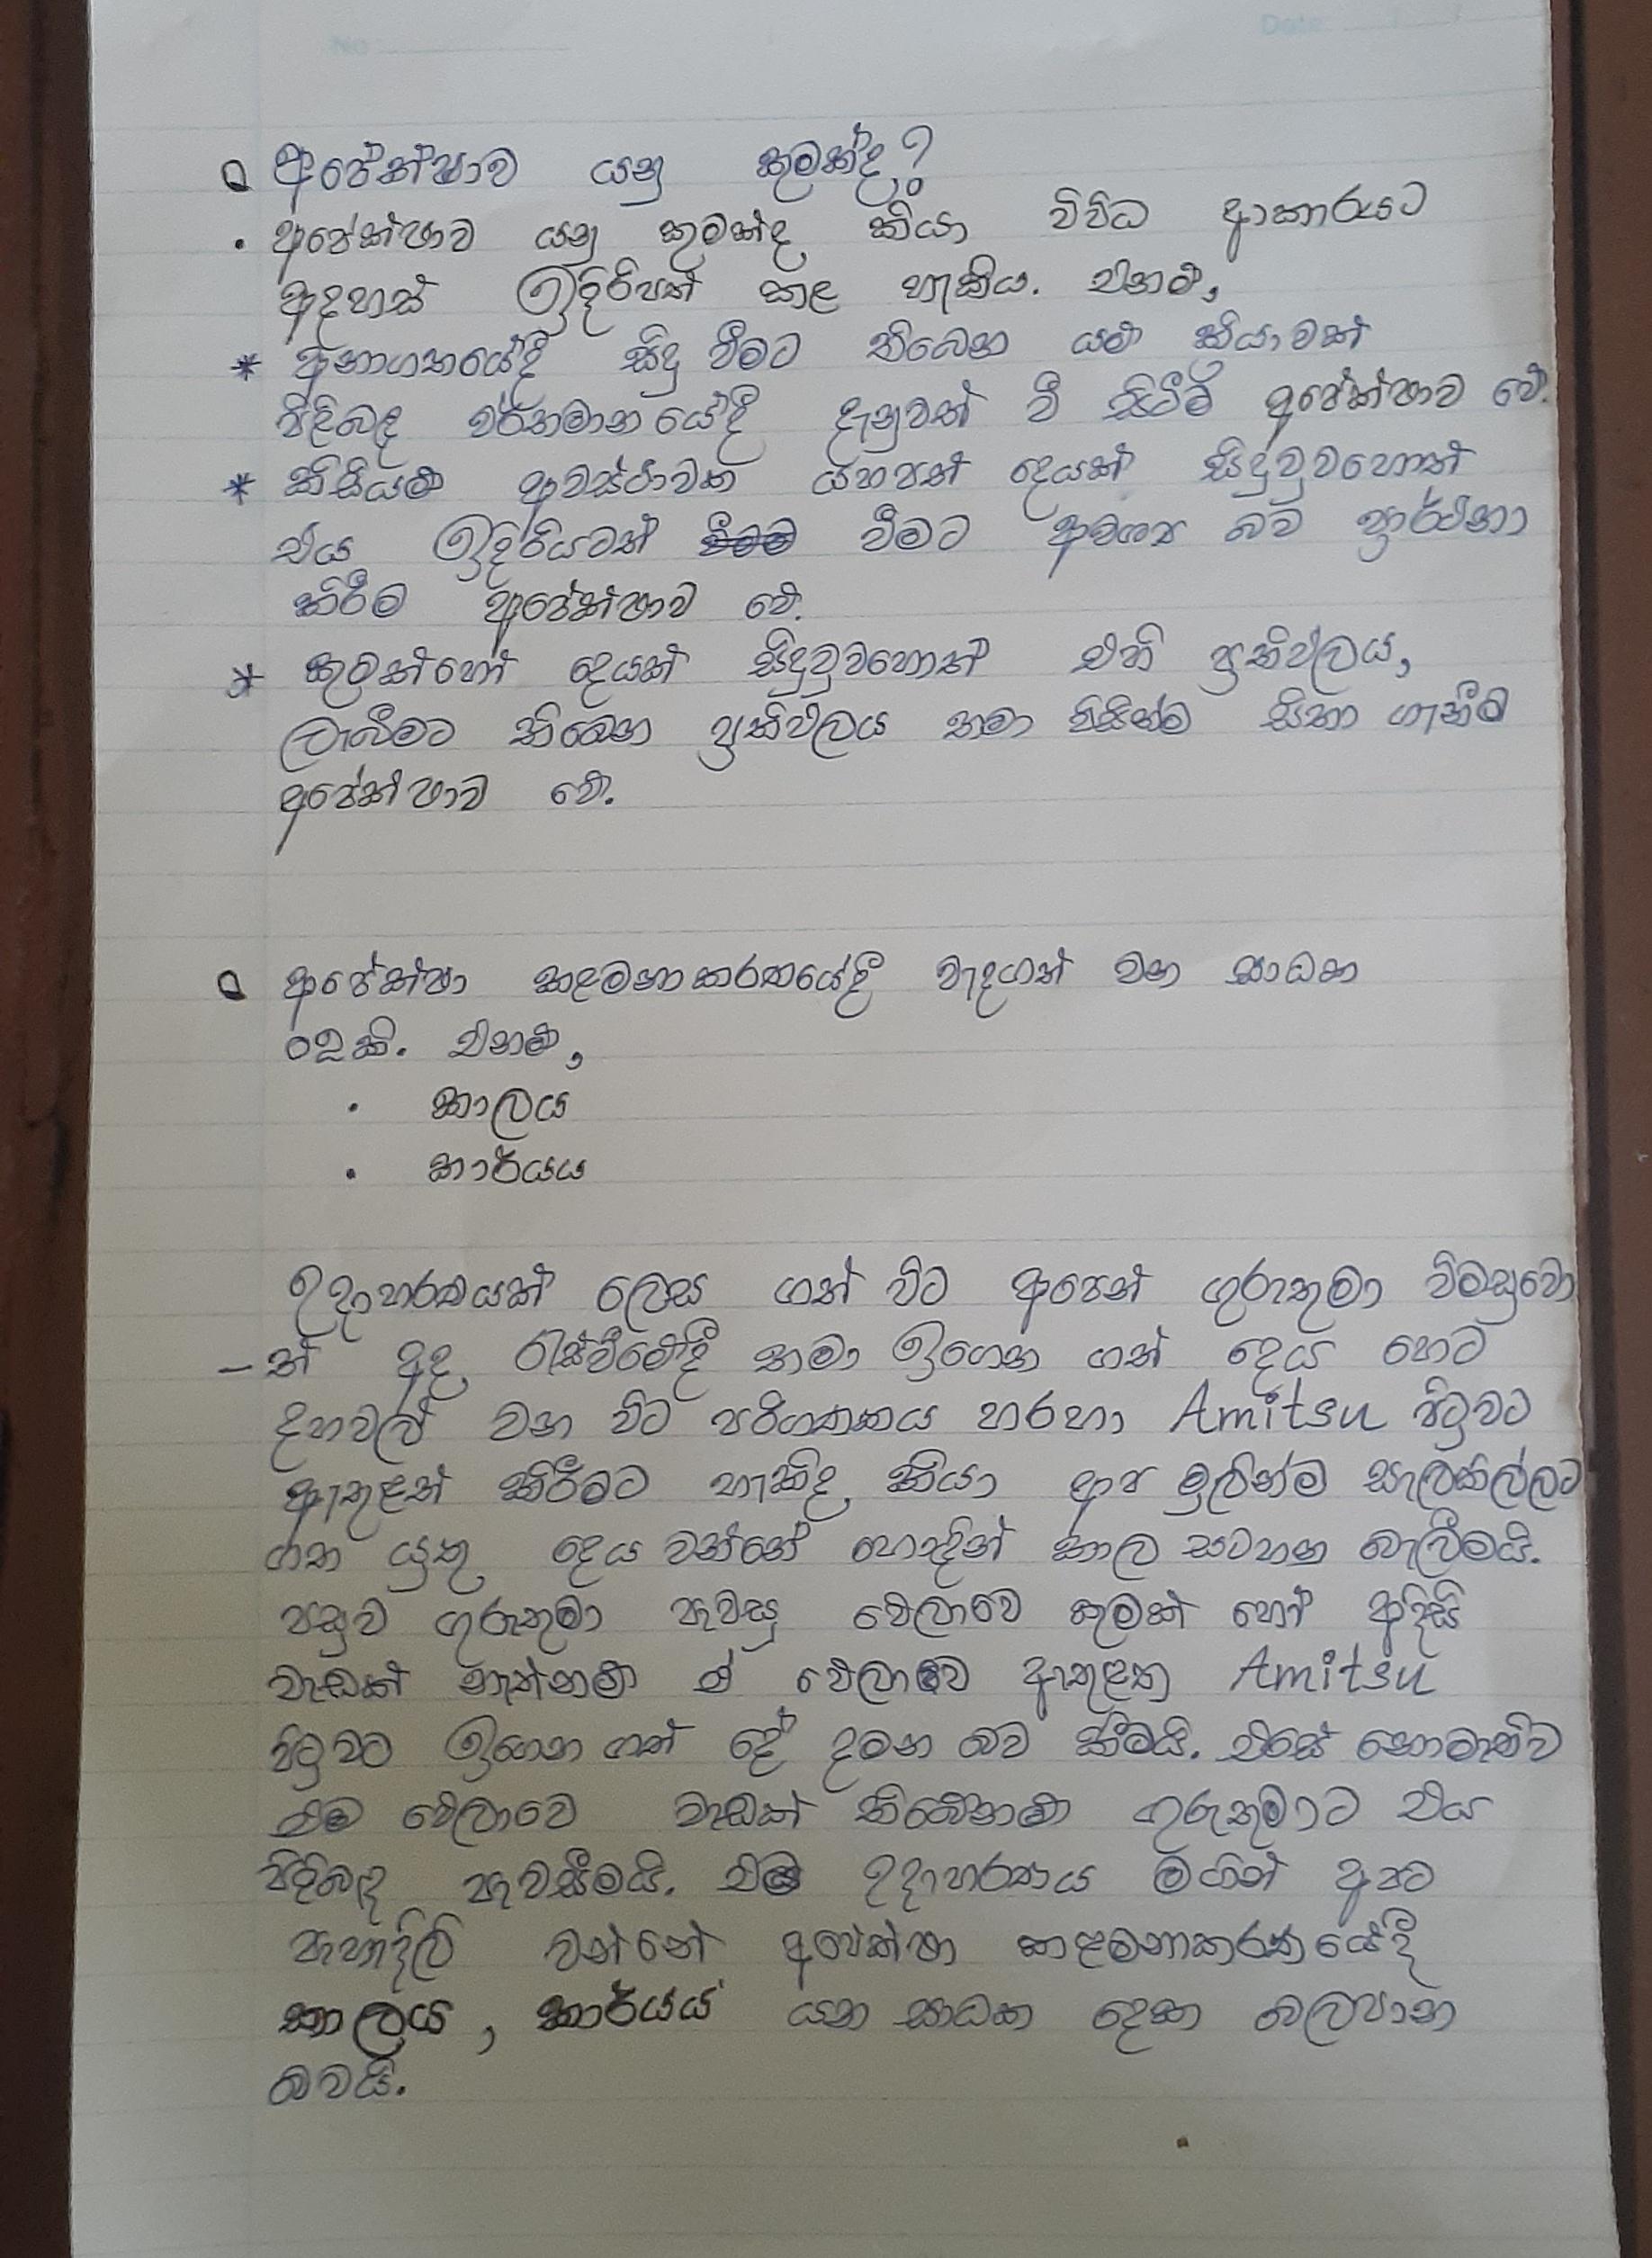 No
Date
අපේක්ෂාව යනු කුමක්ද?
· අපේක්ෂාව යනු කුමක්ද කියා විවිධ ආකාරයට
අදහස් ඉදිරිපත් කළ හැකිය. එනම්,
* අනාගතයේදී සිදු වීමට තිබෙන යම් ක්‍රියාවක්
පිළිබඳ වර්තමානයේදී දැනුවත් වී සිටීම අපේක්ෂාව වේ.
* කිසියම් අවස්ථාවක යහපත් දෙයක් සිදුවුවහොත්
එය ඉදිරියටත් වීමට අවශ්‍ය බව ප්‍රාර්ථනා
කිරීම අපේක්ෂාව වේ.
* කුමක්හෝ දෙයක් සිදුවුවහොත් එහි ප්‍රතිඵලය,
ලැබීමට තිබෙන ප්‍රතිඵලය තමා විසින්ම සිතා ගැනීම
අපේක්ෂාව වේ.
අපේක්ෂා කළමනාකරණයේදී වැදගත් වන සාධක
02කි. එනම්,
· කාලය
· කාර්යය
උදාහරණයක් ලෙස ගත් විට අපෙන් ගුරුතුමා විමසුවො
-ත් අද රැස්වීමේදී තමා ඉගෙන ගත් දෙය හෙට
දහවල් වන විට පරිගණකය හරහා Amitsu පිටුවට
ඇතුළත් කිරීමට හැකිද කියා අප මුලින්ම සැලකිල්ලට
ගත යුතු දෙය වන්නේ හොඳින් කාල සටහන බැලීමයි.
පසුව ගුරුතුමා පැවසූ වෙලාවෙ කුමක් හෝ අදිසි
වැඩක් නැත්නම් ඒ වෙලාව ඇතුළත Amitsu
පිටුවට ඉගෙන ගත් දේ දමන බව කීමයි. එසේ නොමැතිව
එම වෙලාවෙ වැඩක් තිබේනම් ගුරුතුමාට එය
පිළිබඳ පැවසීමයි. එම උදාහරණය මගින් අපට
පැහැදිලි වන්නේ අපේක්ෂා කළමනාකරණයේදී
කාලය, කාර්යය යන සාධක දෙක බලපාන
බවයි.